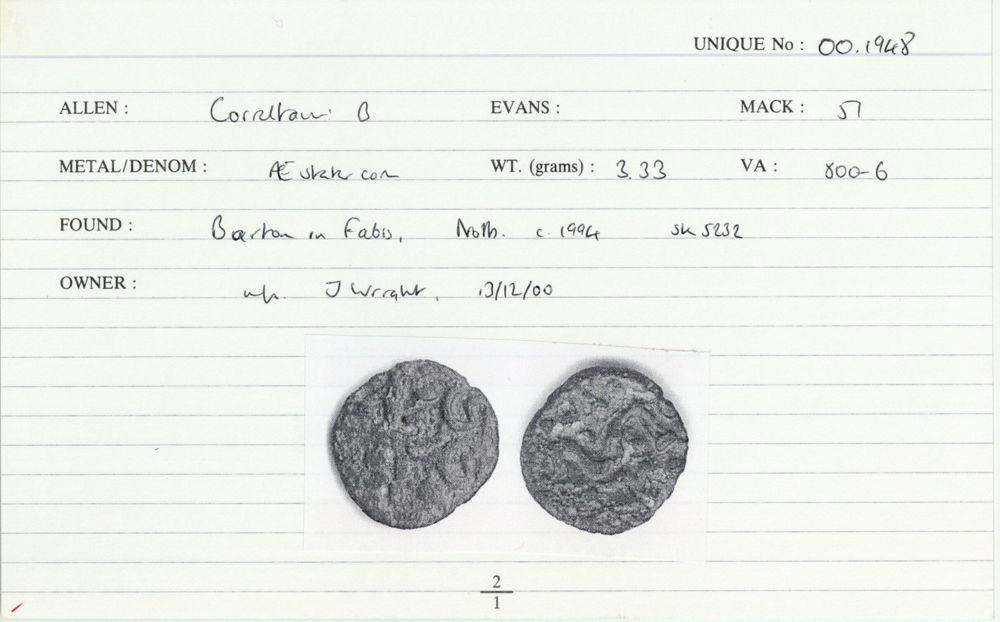 UNIQUE No : 00.1948
ALLEN : Corieltauvi B EVANS : MACK : 51
METAL/DENOM : Æ stater core WT. (grams) : 3.33 VA : 800-6
FOUND : Barton in Fabis, Notts. c. 1994 SK 5232
OWNER : J Wright, 13/12/00
2
1